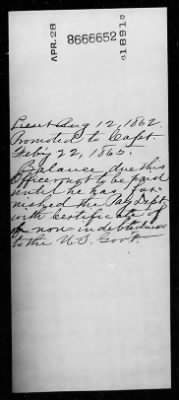 APR. 28
8666652
1891
Lieut Aug 12, 1862.
Promoted to Capt.
Feb'y 22, 1865.
Balance due this
Officer not to be paid
until he has fur-
nished the Pay Dept.
with Certificate of
non indebtedness
to the U.S. Gov't.